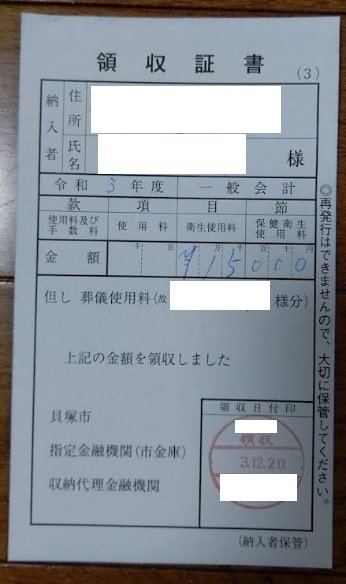 領収証書
(3)
納入者
住所
氏名
様
令和3年度 一般会計
款 項 目 節
使用料及び手数料 使用料 衛生使用料 保健衛生使用料
金額 千 百 十 万 千 百 十 円
¥15000
但し 葬儀使用料(故 様分)
上記の金額を領収しました
貝塚市
指定金融機関(市金庫)
収納代理金融機関
領収日付印
領収
3.12.20
(納入者保管)
◎再発行はできませんので、大切に保管してください。